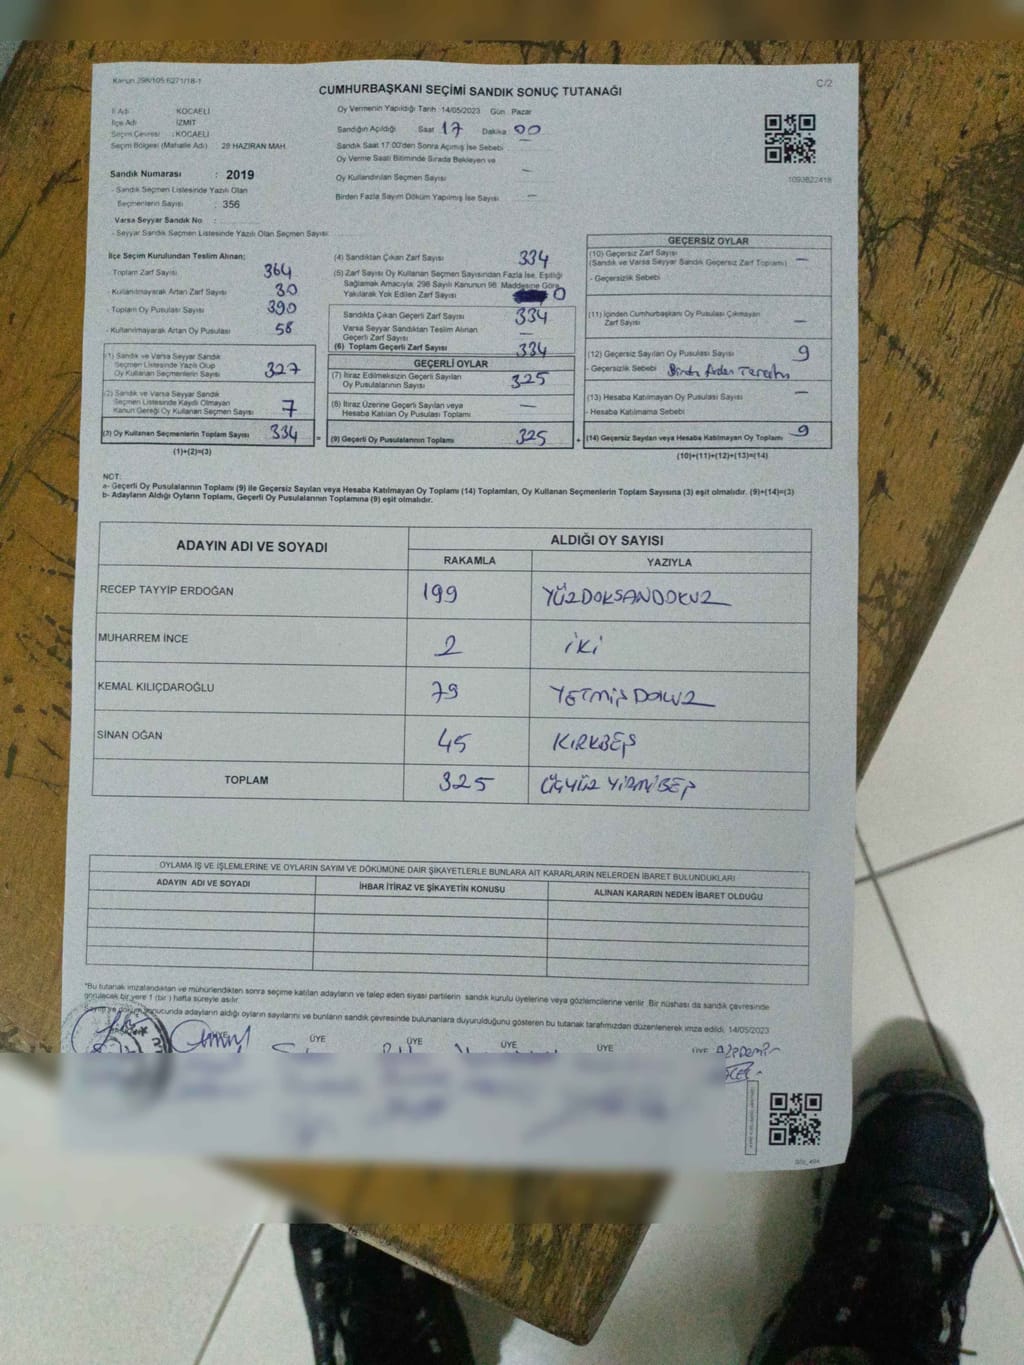 Kanun 298/105 6271/18-1
C/2
CUMHURBAŞKANI SEÇİMİ SANDIK SONUÇ TUTANAĞI
İl Adı : KOCAELİ
İlçe Adı : İZMİT
Seçim Çevresi : KOCAELİ
Seçim Bölgesi (Mahalle Adı) 28 HAZİRAN MAH.
Oy Vermenin Yapıldığı Tarih :14/05/2023 Gün : Pazar
Sandığın Açıldığı Saat 17 Dakika 00
Sandık Saat 17.00'den Sonra Açılmış İse Sebebi
Oy Verme Saati Bitiminde Sırada Bekleyen ve
Oy Kullandırılan Seçmen Sayısı —
Birden Fazla Sayım Döküm Yapılmış İse Sayısı —
1093822418
Sandık Numarası : 2019
- Sandık Seçmen Listesinde Yazılı Olan
Seçmenlerin Sayısı : 356
Varsa Seyyar Sandık No :
- Seyyar Sandık Seçmen Listesinde Yazılı Olan Seçmen Sayısı
İlçe Seçim Kurulundan Teslim Alınan:
Toplam Zarf Sayısı 364
- Kullanılmayarak Artan Zarf Sayısı 30
Toplam Oy Pusulası Sayısı 390
- Kullanılmayarak Artan Oy Pusulası 56
(1) Sandık ve Varsa Seyyar Sandık
Seçmen Listesinde Yazılı Olup
Oy Kullanan Seçmenlerin Sayısı 327
(2) Sandık Seçmen Listesinde Kayıtlı Olmayan
Kanun Gereği Oy Kullanan Seçmen Sayısı 7
(3) Oy Kullanan Seçmenlerin Toplam Sayısı 334
(1)+(2)=(3)
(4) Sandıktan Çıkan Zarf Sayısı 334
(5) Zarf Sayısı Oy Kullanan Seçmen Sayısından Fazla İse, Eşitliği
Sağlamak Amacıyla, 298 Sayılı Kanunun 98. Maddesine Göre
Yakılarak Yok Edilen Zarf Sayısı 0
Sandıkta Çıkan Geçerli Zarf Sayısı 334
Varsa Seyyar Sandıktan Teslim Alınan
Geçerli Zarf Sayısı —
(6) Toplam Geçerli Zarf Sayısı 334
GEÇERLİ OYLAR
(7) İtiraz Edilmeksizin Geçerli Sayılan
Oy Pusulalarının Sayısı 325
(8) İtiraz Üzerine Geçerli Sayılan veya
Hesaba Katılan Oy Pusulası Toplamı —
= (9) Geçerli Oy Pusulalarının Toplamı 325 +
GEÇERSİZ OYLAR
(10) Geçersiz Zarf Sayısı
(Sandık ve Varsa Seyyar Sandık Geçersiz Zarf Toplamı) —
- Geçersizlik Sebebi
(11) İçinden Cumhurbaşkanı Oy Pusulası Çıkmayan
Zarf Sayısı —
(12) Geçersiz Sayılan Oy Pusulası Sayısı 9
- Geçersizlik Sebebi Birden
(13) Hesaba Katılmayan Oy Pusulası Sayısı —
- Hesaba Katılmama Sebebi
(14) Geçersiz Sayılan veya Hesaba Katılmayan Oy Toplamı 9
(10)+(11)+(12)+(13)=(14)
NOT:
a- Geçerli Oy Pusulalarının Toplamı (9) ile Geçersiz Sayılan veya Hesaba Katılmayan Oy Toplamı (14) Toplamları, Oy Kullanan Seçmenlerin Toplam Sayısına (3) eşit olmalıdır. (9)+(14)=(3)
b- Adayların Aldığı Oyların Toplamı, Geçerli Oy Pusulalarının Toplamına (9) eşit olmalıdır.
ADAYIN ADI VE SOYADI
ALDIĞI OY SAYISI
RAKAMLA YAZIYLA
RECEP TAYYİP ERDOĞAN 199 YÜZDOKSANDOKUZ
MUHARREM İNCE 2 İKİ
KEMAL KILIÇDAROĞLU 79 YETMİŞ DOKUZ
SİNAN OĞAN 45 KIRKBEŞ
TOPLAM 325 ÜÇYÜZ YİRMİBEŞ
OYLAMA İŞ VE İŞLEMLERİNE VE OYLARIN SAYIM VE DÖKÜMÜNE DAİR ŞİKAYETLERLE BUNLARA AİT KARARLARIN NELERDEN İBARET BULUNDUKLARI
ADAYIN ADI VE SOYADI İHBAR İTİRAZ VE ŞİKAYETİN KONUSU ALINAN KARARIN NEDEN İBARET OLDUĞU
*Bu tutanak imzalandıktan ve mühürlendikten sonra seçime katılan adayların ve talep eden siyasi partilerin sandık kurulu üyelerine veya gözlemcilerine verilir. Bir nüshası da sandık çevresinde
görülecek bir yere 1 (bir) hafta süreyle asılır.
sonucunda adayların aldığı oyların sayılarını ve bunların sandık çevresinde bulunanlara duyurulduğunu gösteren bu tutanak tarafımızdan düzenlenerek imza edildi. 14/05/2023
ÜYE ÜYE ÜYE ÜYE ÜYE ÜYE